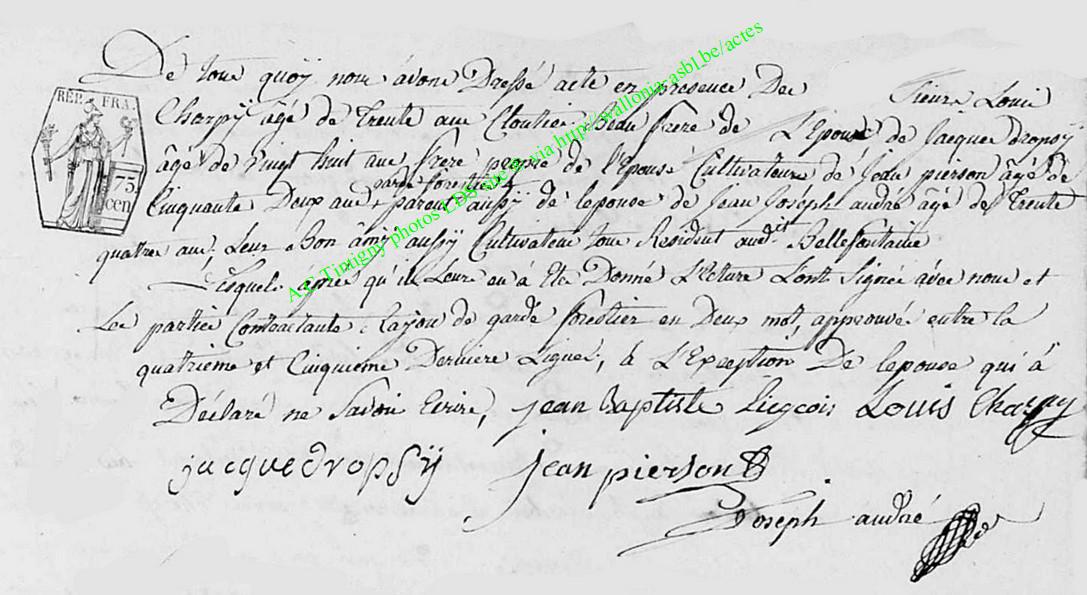 De tout quoÿ nous avons Dressé acte en presence Des Sieurs Louis
RÉP. FRA.
Charpÿ âgé de Trente ans Cloutier Beau frere de L'Epouse de Jacque Dropsÿ
âgé de Vingt huit ans frere propre de l'Epouse Cultivateurs de Jean pierson âgé de
75
cen
garde forestier
Cinquante Deux ans + parent aussÿ de lepouse de Jean Joseph andre âgé de Trente
quatre ans, Leur Bon âmis aussÿ Cultivateur tous Resident audit Bellefontaine
Lesquels âpres qu'il Leurs en à Eté Donné L'Ecture L'ont Signée avec nous et
Les parties Contractantes Lajou de garde forestier en Deux mots, approuvé entre la
quatrieme et Cinquieme Derniere Lignes, à L'Exception De lepouse qui à
Déclaré ne Savoir Ecrire, jean Baptiste Liegeois Louis Charpy
jacque dropsÿ jean pierson
Joseph andré
A.E. Tintigny photos LDS site gt via http://wallonia-asbl.be/actes